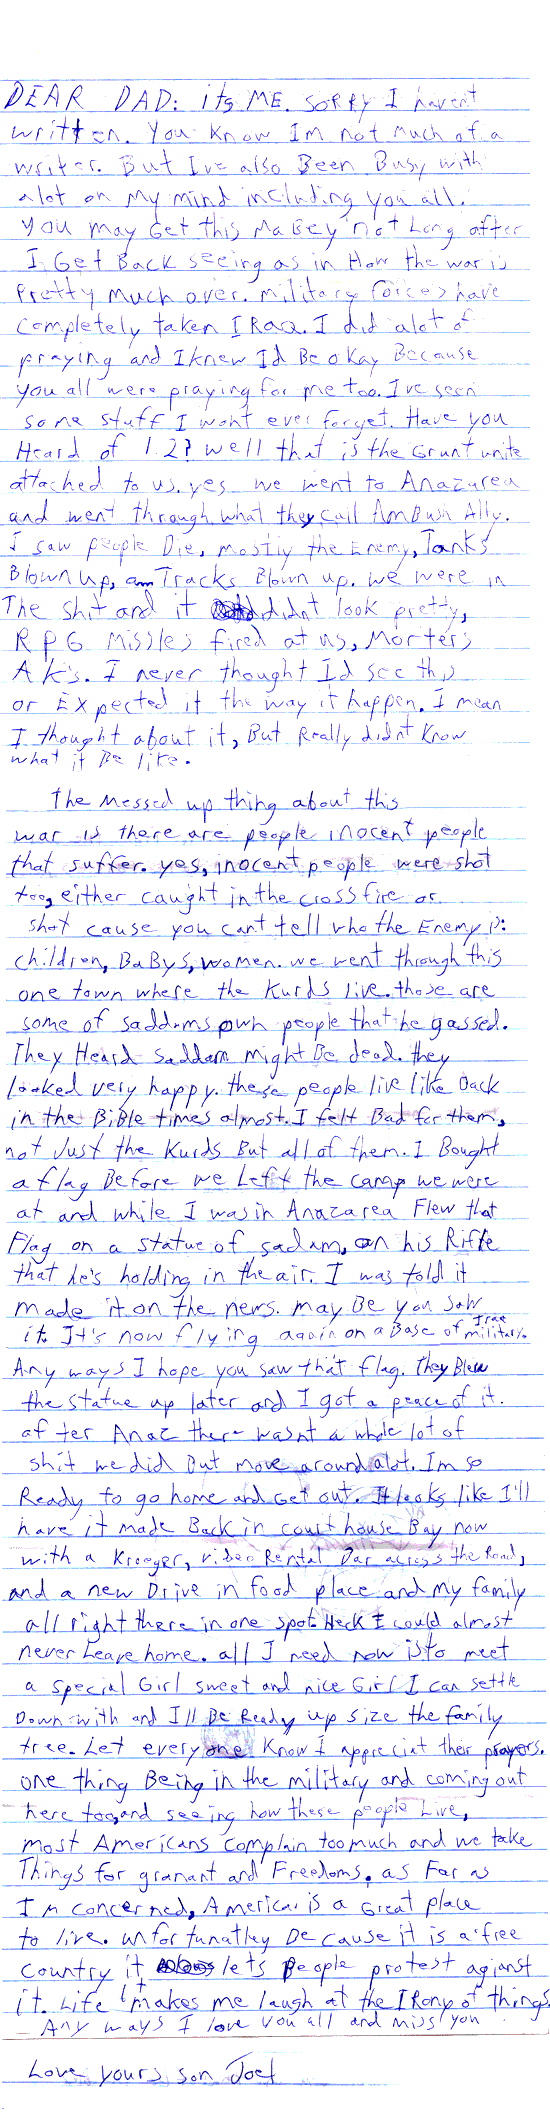 DEAR DAD: its ME. SORRY I havent
written. You Know Im not Much of a
writer. But I've also Been Busy with
alot on My mind including you all.
you may Get this MaBey not Long after
I Get Back seeing as in How the war is
Pretty Much over. military forces have
completely taken IRaq. I did alot of
praying and I knew I'd Be okay Because
you all were praying for me too. I've seen
some stuff I wont ever forget. Have you
Heard of 1.2? well that is the Grunt unite
attached to us. yes we went to Anazarea
and went through what they call AmBush Ally.
I saw people Die, mostly the Enemy, Tanks
Blown up, Tracks Blown up. we were in
The shit and it didnt look pretty,
RPG Missles fired at us, Morters
AK's. I never thought I'd see this
or EXpected it the way it happen. I mean
I thought about it, But Really didnt Know
what it Be like.
The Messed up thing about this
war is there are people inocent people
that suffer. yes, inocent people were shot
too, either caught in the cross fire or
shot cause you cant tell who the Enemy is:
children, BaBys, women. we went through this
one town where the Kurds live. those are
some of saddams own people that he gassed.
They Heard Saddam might Be dead. they
looked very happy. these people live like Back
in the BiBle times almost. I felt Bad for them,
not Just the Kurds But all of them. I Bought
a flag Before we Left the camp we were
at and while I was in Anazarea Flew that
Flag on a statue of sadam, on his Riffe
that he's holding in the air. I was told it
made it on the news. may Be you saw
it. It's now flying again on a Base of Iraq military.
Any ways I hope you saw that flag. They Blew
the statue up later and I got a peace of it.
after Anaz there wasnt a whole lot of
shit we did But move around alot. Im so
Ready to go home and Get out. It looks like I'll
have it made Back in court house Bay now
with a Kroeger, video Rental Bar across the Road,
and a new Drive in food place and My family
all right there in one spot. Heck I could almost
never Leave home. all I need now is to meet
a special Girl sweet and nice Girl I can settle
Down with and I'll Be Ready up size the family
tree. Let everyone Know I appreciat their prayers.
one thing Being in the military and coming out
here too, and seeing how these people Live,
most Americans complain too much and we take
Things for granant and Freedoms. as Far as
I'm concerned, America is a Great place
to live. unfortunatley Because it is a free
country it lets People protest agianst
it. Life it makes me laugh at the IRony of things
Any ways I love you all and miss you
Love yours son Joel